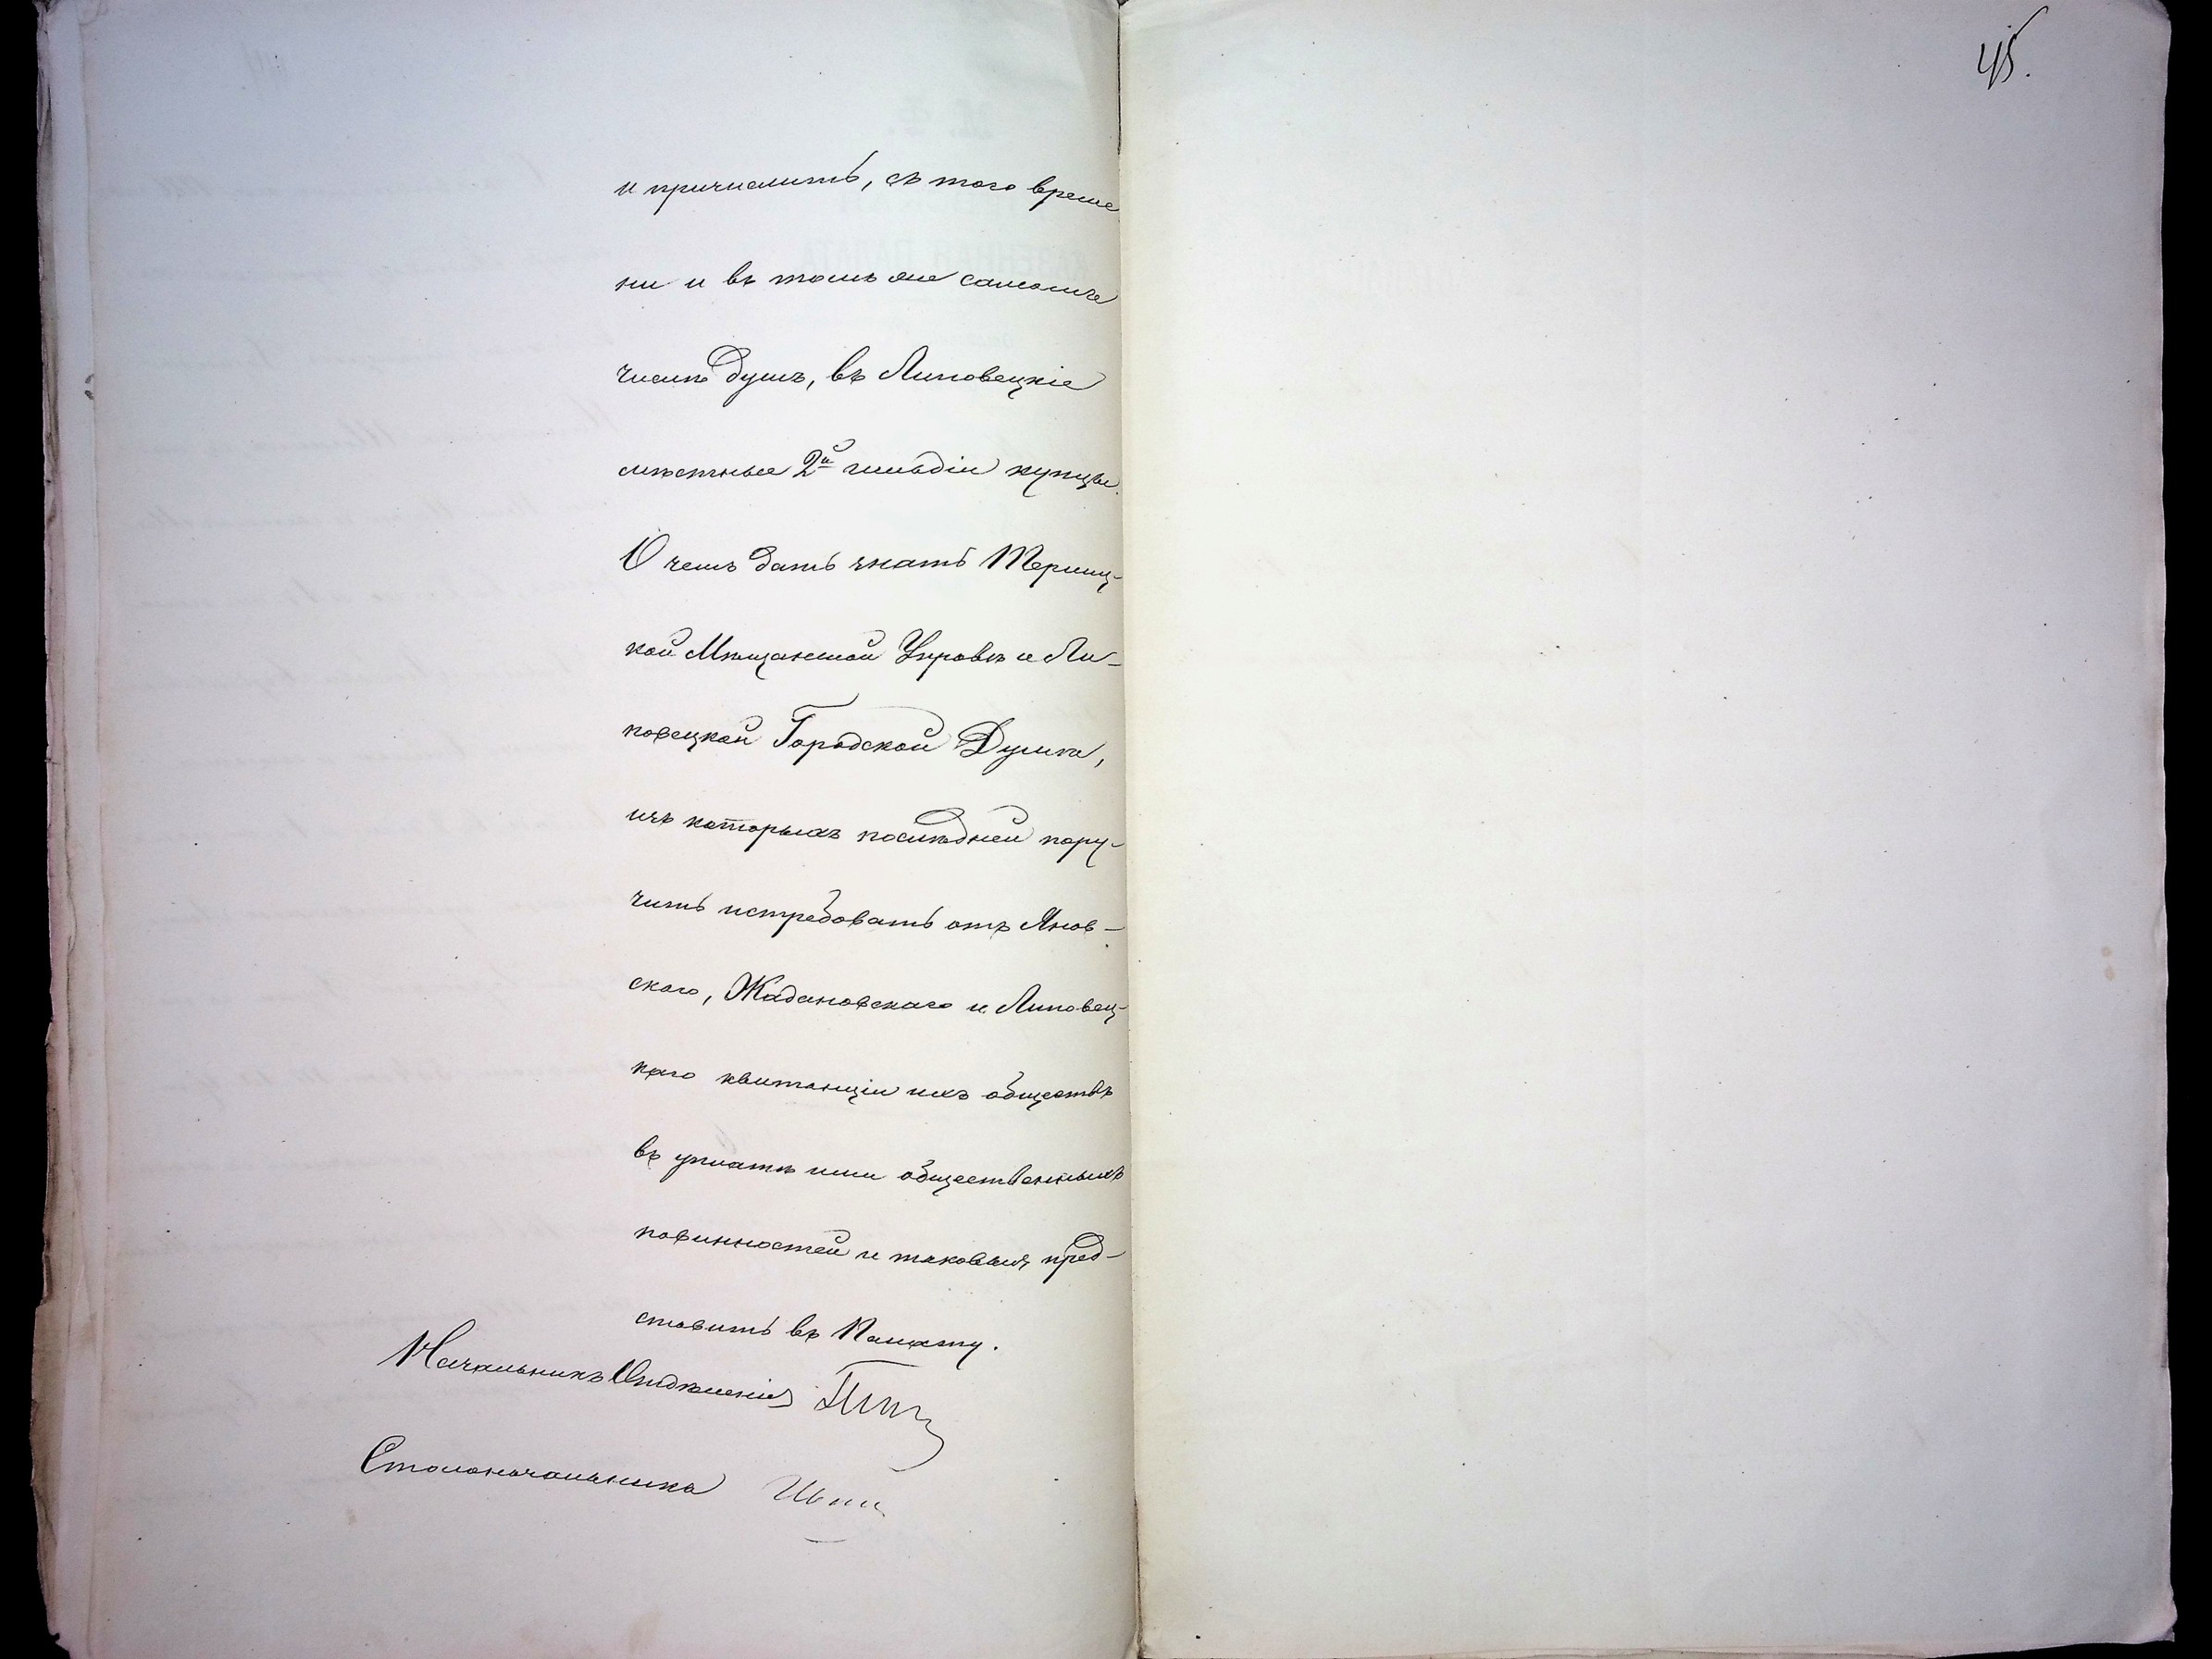 45.
и причислить, съ того време
ни и въ томъ же самомъ
числѣ душъ, въ Липовецкіе
мѣстные 2й гильдіи купцы.
О чемъ дать знать
кой Мѣщанской Управѣ и Ли-
повецкой Городской Думѣ,
изъ которыхъ послѣдней пору-
чить истребовать отъ Янов-
скаго, Жадановскаго и Липовец-
каго квитанціи ихъ обществъ
въ уплатѣ ими общественныхъ
повинностей и таковыя пред-
ставить въ Палату.
Начальникъ Отдѣленія
Столоначальника